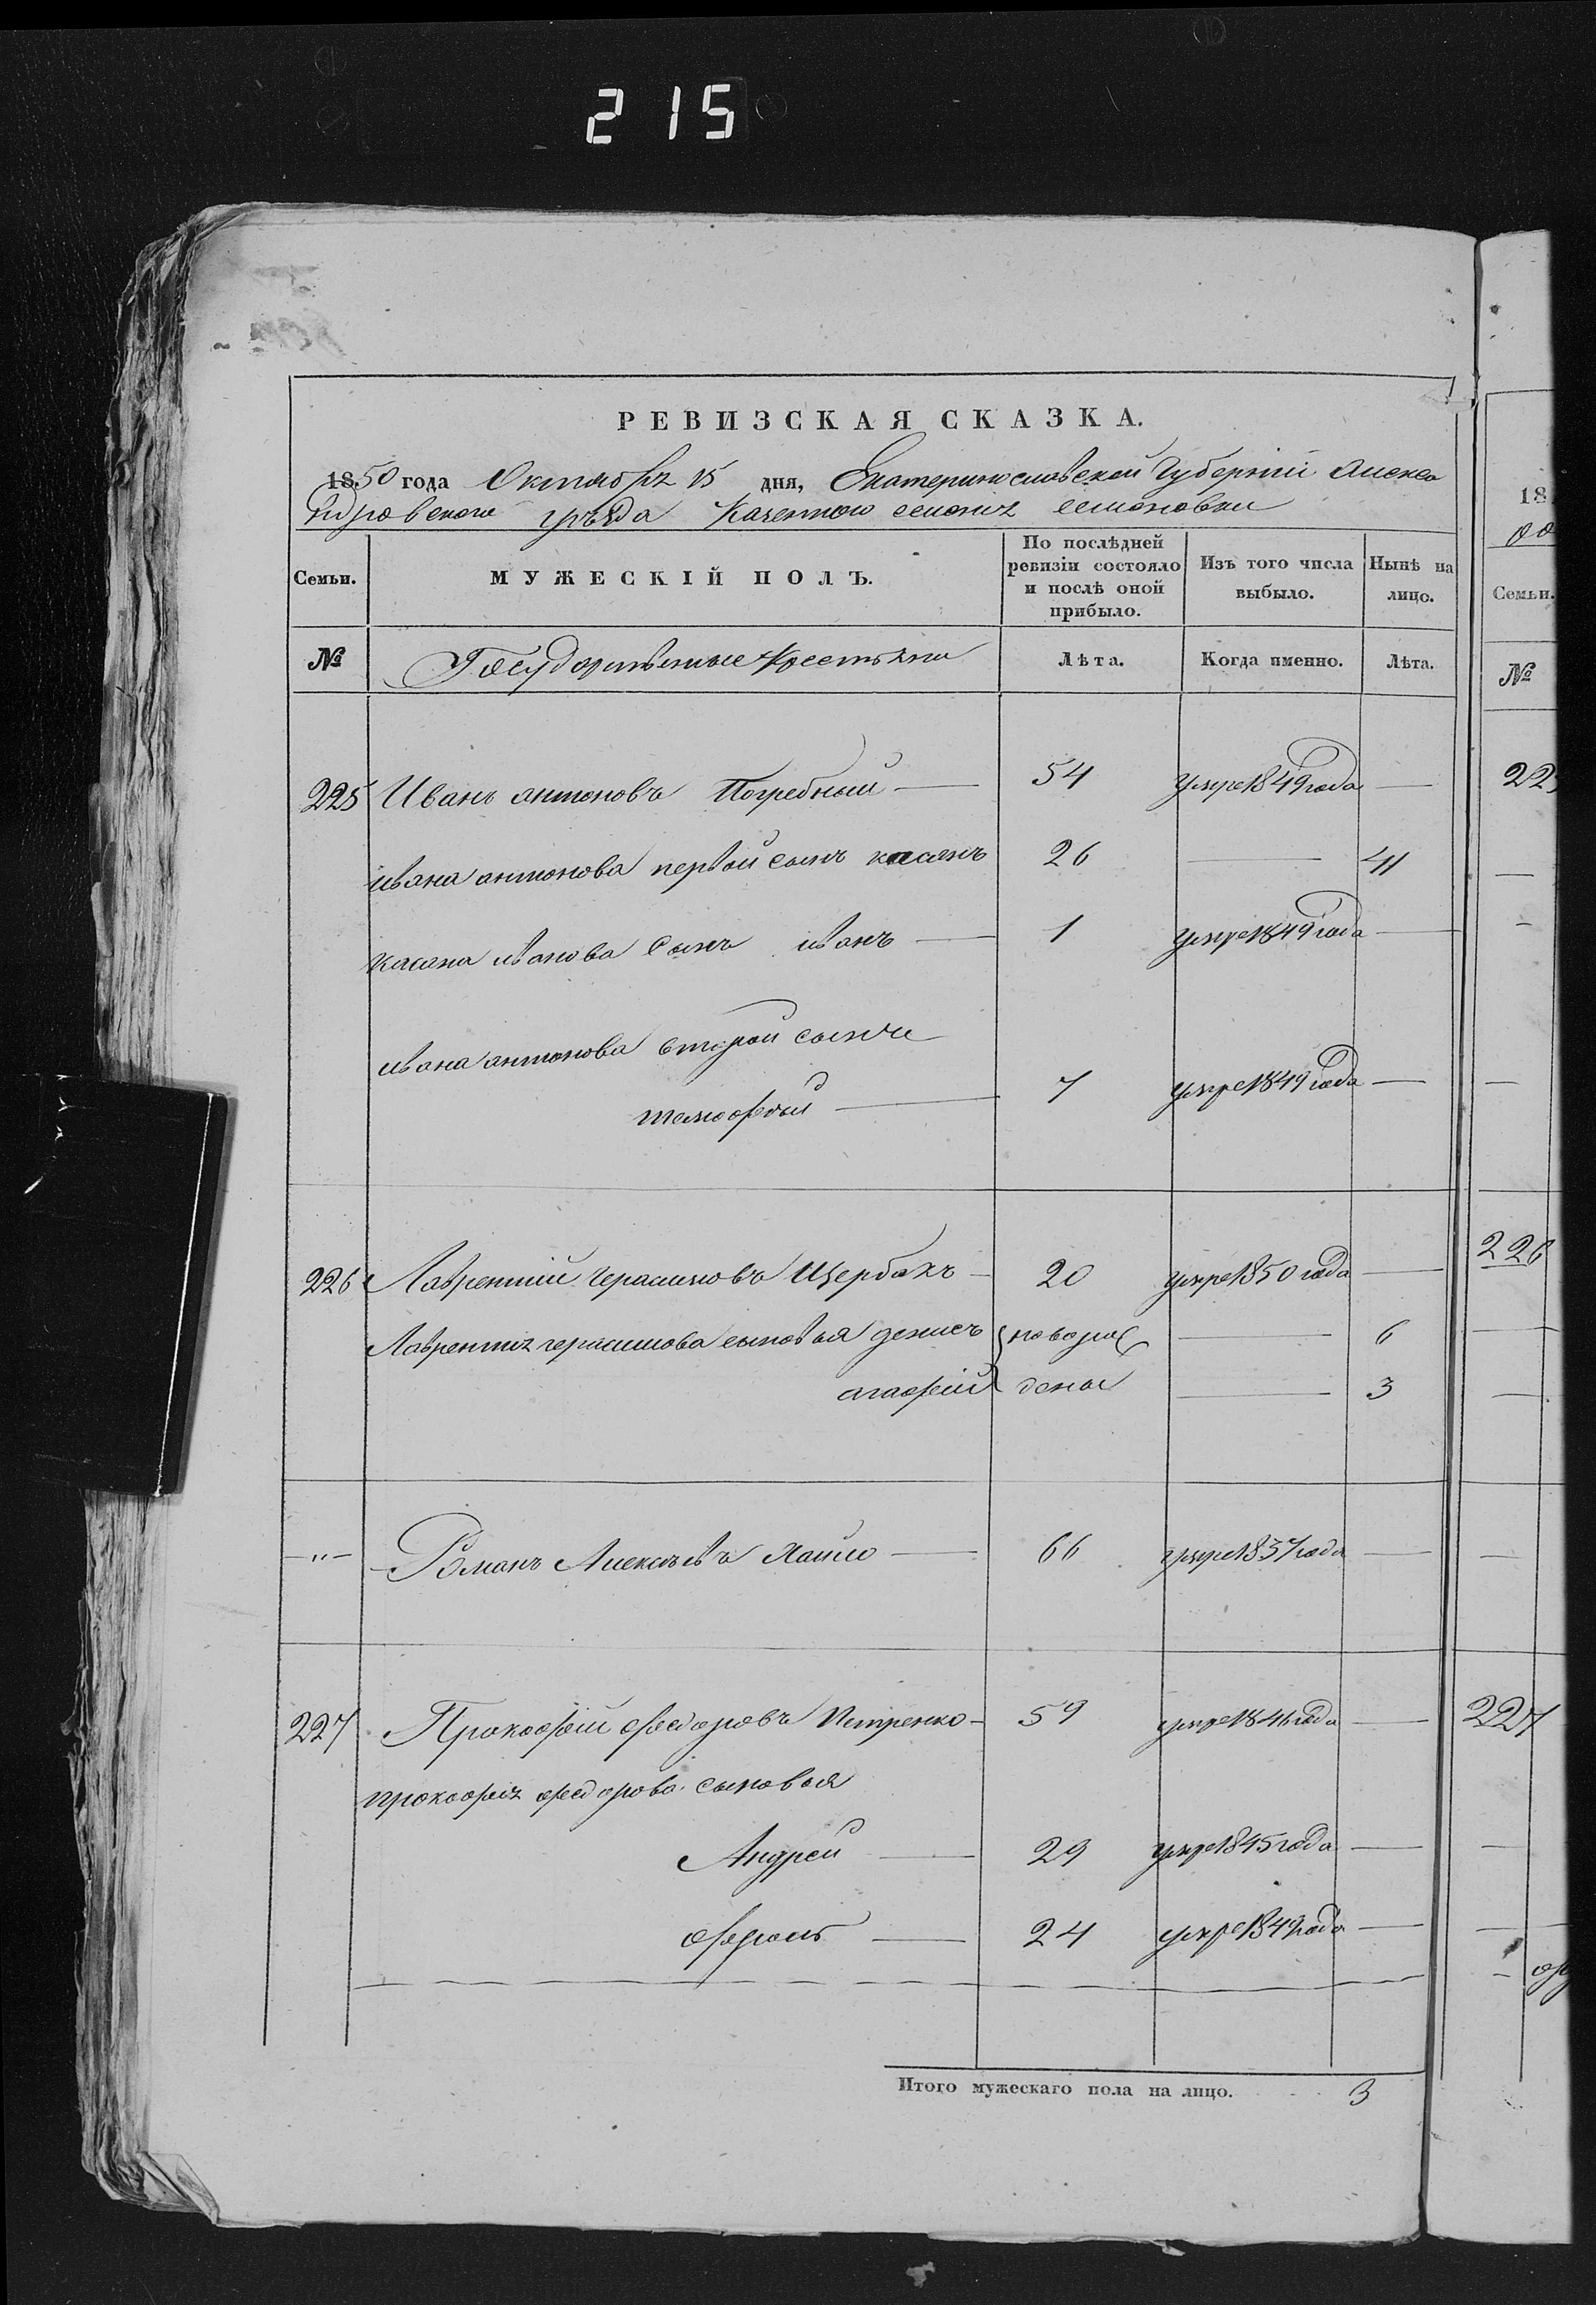 215
РЕВИЗСКАЯ СКАЗКА.
1850 года Октября 15 дня, Екатеринославской Губерніи Алекса
ндровского уезда Казенного селенія Семоновки
Семьи. МУЖЕСКІЙ ПОЛЪ. По послѣдней ревизіи состояло и послѣ оной прибыло. Изъ того числа выбыло. Нынѣ на лицо.
№ Государственные Крестьяне Лѣта. Когда именно. Лѣта.
225 Иванъ антоновъ Погребный — 54 умре 1849 года —
ивана антонова первой сынъ касянъ 26 — 41
касяна иванова Сынъ иванъ — 1 умре 1849 года —
ивана антонова второй сынъ
тимофей — 7 умре 1849 года —
226 Лаврентій Герасимовъ Щербакъ — 20 умре 1850 года —
Лаврентія герасимова сыновья денисъ новорож — 6
агафей дены — 3
—"— Романъ Алексѣевъ — 66 умре 1837 года —
227 Прокофей федоровъ Петренко — 59 умре 1846 года —
прокофея федорова сыновья
Андрей — 29 умре 1845 года —
— 24 умре 1849 года —
Итого мужескаго пола на лицо. 3
18
Семьи.
№
225
226
227